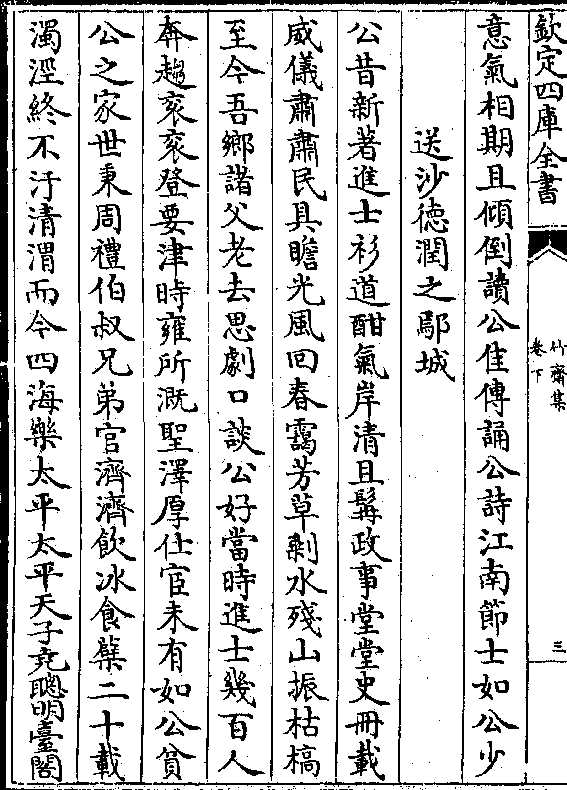 欽定四庫全書
竹齋集
卷下
三
意氣相期且傾倒讀公佳傳誦公詩江南節士如公少
送沙德潤之鄢城
公昔新著進士衫道酣氣岸清且髯政事堂堂史冊載
威儀肅肅民具瞻光風回春靄芳草剩水殘山振枯槁
至今吾鄉諸父老去思劇口談公好當時進士幾百人
奔趨衮衮登要津時雍所溉聖澤厚仕宦未有如公貧
公之家世秉周禮伯叔兄弟官濟濟飲冰食蘖二十載
濁涇終不汙清渭而今四海樂太平太平天子克聰明臺閣